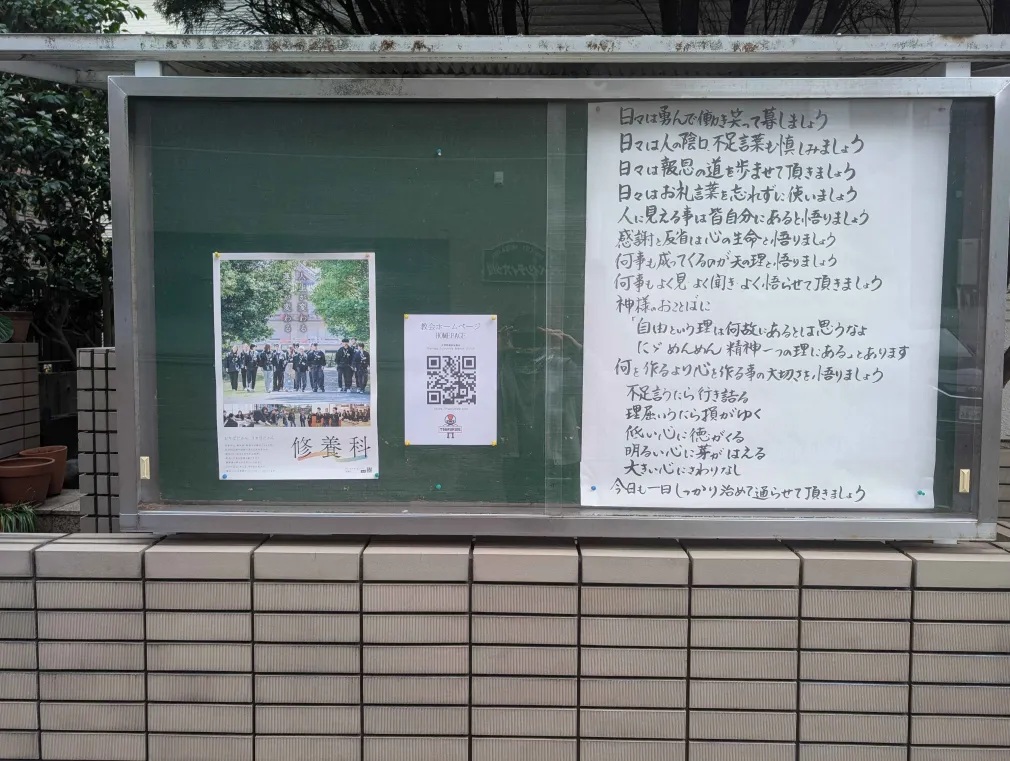 修養科
教会ホームページ
HOMEPAGE
日々は勇んで働き笑って暮しましょう
日々は人の陰口 不足言葉も慎しみましょう
日々は報恩の道を歩ませて頂きましょう
日々はお礼言葉を忘れずに使いましょう
人に見える事は皆自分にあると悟りましょう
感謝と反省は心の生命と悟りましょう
何事も成ってくるのが天の理と悟りましょう
何事もよく見 よく聞き よく悟らせて頂きましょう
神様のおことばに
「自由という理は何故にあるとは思うなよ
にゞめんめん 精神一つの理にある」とあります
何を作るより心を作る事の大切さを悟りましょう
不足言うたら行き詰る
理屈いうたら損がゆく
低い心に徳がくる
明るい心に芽がはえる
大きい心にさわりなし
今日も一日しっかり治めて通らせて頂きましょう